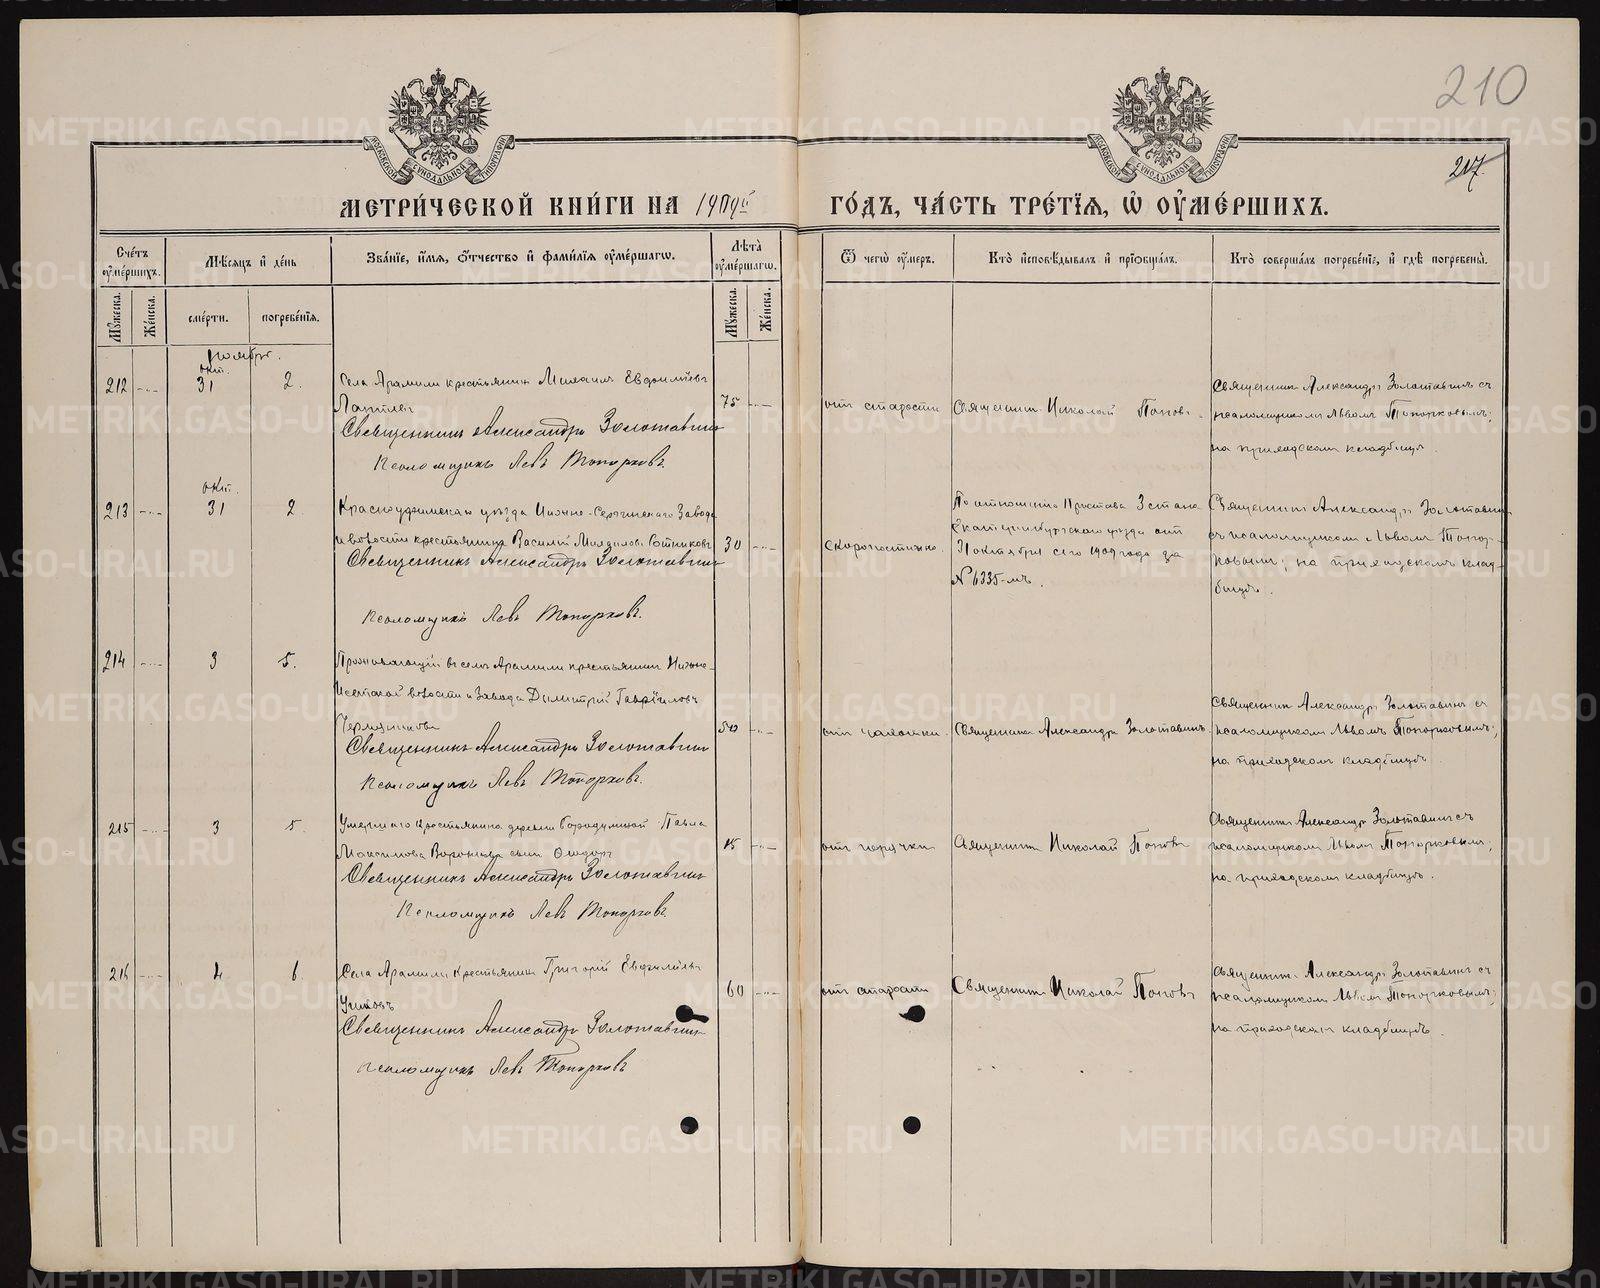 210
217.
МОСКОВСКОЙ СѴНОДАЛЬНОЙ ТИПОГРАФІИ
МОСКОВСКОЙ СѴНОДАЛЬНОЙ ТИПОГРАФІИ
МЕТРИ́ЧЕСКОЙ КНИ́ГИ НА 1909й ГО́ДЪ, ЧА́СТЬ ТРЕ́ТІѦ, Ѡ҆ ОУ҆МЕ́РШИХЪ.
Сче́тъ оу҆ме́ршихъ.
Мѣ́сѧцъ и҆ де́нь
Зва́нїе, и҆́мѧ, ѻ҆́тчество и҆ фами́лїѧ оу҆ме́ршагѡ.
Лѣ́та оу҆ме́ршагѡ.
Ѿ чегѡ̀ оу҆́меръ.
Кто̀ и҆сповѣ́дывалъ и҆ прїѻбща́лъ.
Кто̀ соверша́лъ погребе́нїе, и҆ гдѣ̀ погребены̀.
Мꙋ́жеска.
Же́нска.
сме́рти.
погребе́нїѧ.
Мꙋ́жеска.
Же́нска.
Ноябрь.
212
окт. 31
2.
Села Арамили крестьянинъ Михаилъ Евдокимовъ
Священникъ Александръ Золотавинъ
Псаломщикъ Левъ Топорковъ.
75
отъ старости
Священникъ Николай Поповъ.
Священникъ Александръ Золотавинъ съ
псаломщикомъ Львомъ Топорковымъ;
на приходскомъ кладбищѣ.
213
окт. 31
2
Красноуфимскаго уѣзда Нижне-Сергинскаго Завода
и волости крестьянинъ Василій Михаиловъ Сотниковъ
Священникъ Александръ Золотавинъ
Псаломщикъ Левъ Топорковъ.
30
скоропостижно.
По отношенію Пристава 3 стана
Екатеринбургскаго уѣзда отъ
31 октября сего 1909 года за
№ 6335-мъ.
Священникъ Александръ Золотавинъ
съ псаломщикомъ Львомъ Топор-
ковымъ; на приходскомъ клад-
бищѣ.
214
3
5.
Проживающій въ селѣ Арамили крестьянинъ Нижне-
Исетской волости и Завода Димитрій Гавріиловъ
Священникъ Александръ Золотавинъ
Псаломщикъ Левъ Топорковъ.
50
отъ чахотки.
Священникъ Александръ Золотавинъ.
Священникъ Александръ Золотавинъ съ
псаломщикомъ Львомъ Топорковымъ;
на приходскомъ кладбищѣ.
215
3
5.
Умершаго крестьянина деревни Бородулиной Павла
Максимова Воронина сынъ Ѳеодоръ
Священникъ Александръ Золотавинъ
Псаломщикъ Левъ Топорковъ.
15
отъ горячки
Священникъ Николай Поповъ
Священникъ Александръ Золотавинъ съ
псаломщикомъ Львомъ Топорковымъ;
на приходскомъ кладбищѣ.
216
4
6
Села Арамили крестьянинъ Григорій
Священникъ Александръ Золотавинъ
Псаломщикъ Левъ Топорковъ
60
отъ старости
Священникъ Николай Поповъ
Священникъ Александръ Золотавинъ съ
псаломщикомъ Львомъ Топорковымъ;
на приходскомъ кладбищѣ.
METRIKI.GASO-URAL.RU